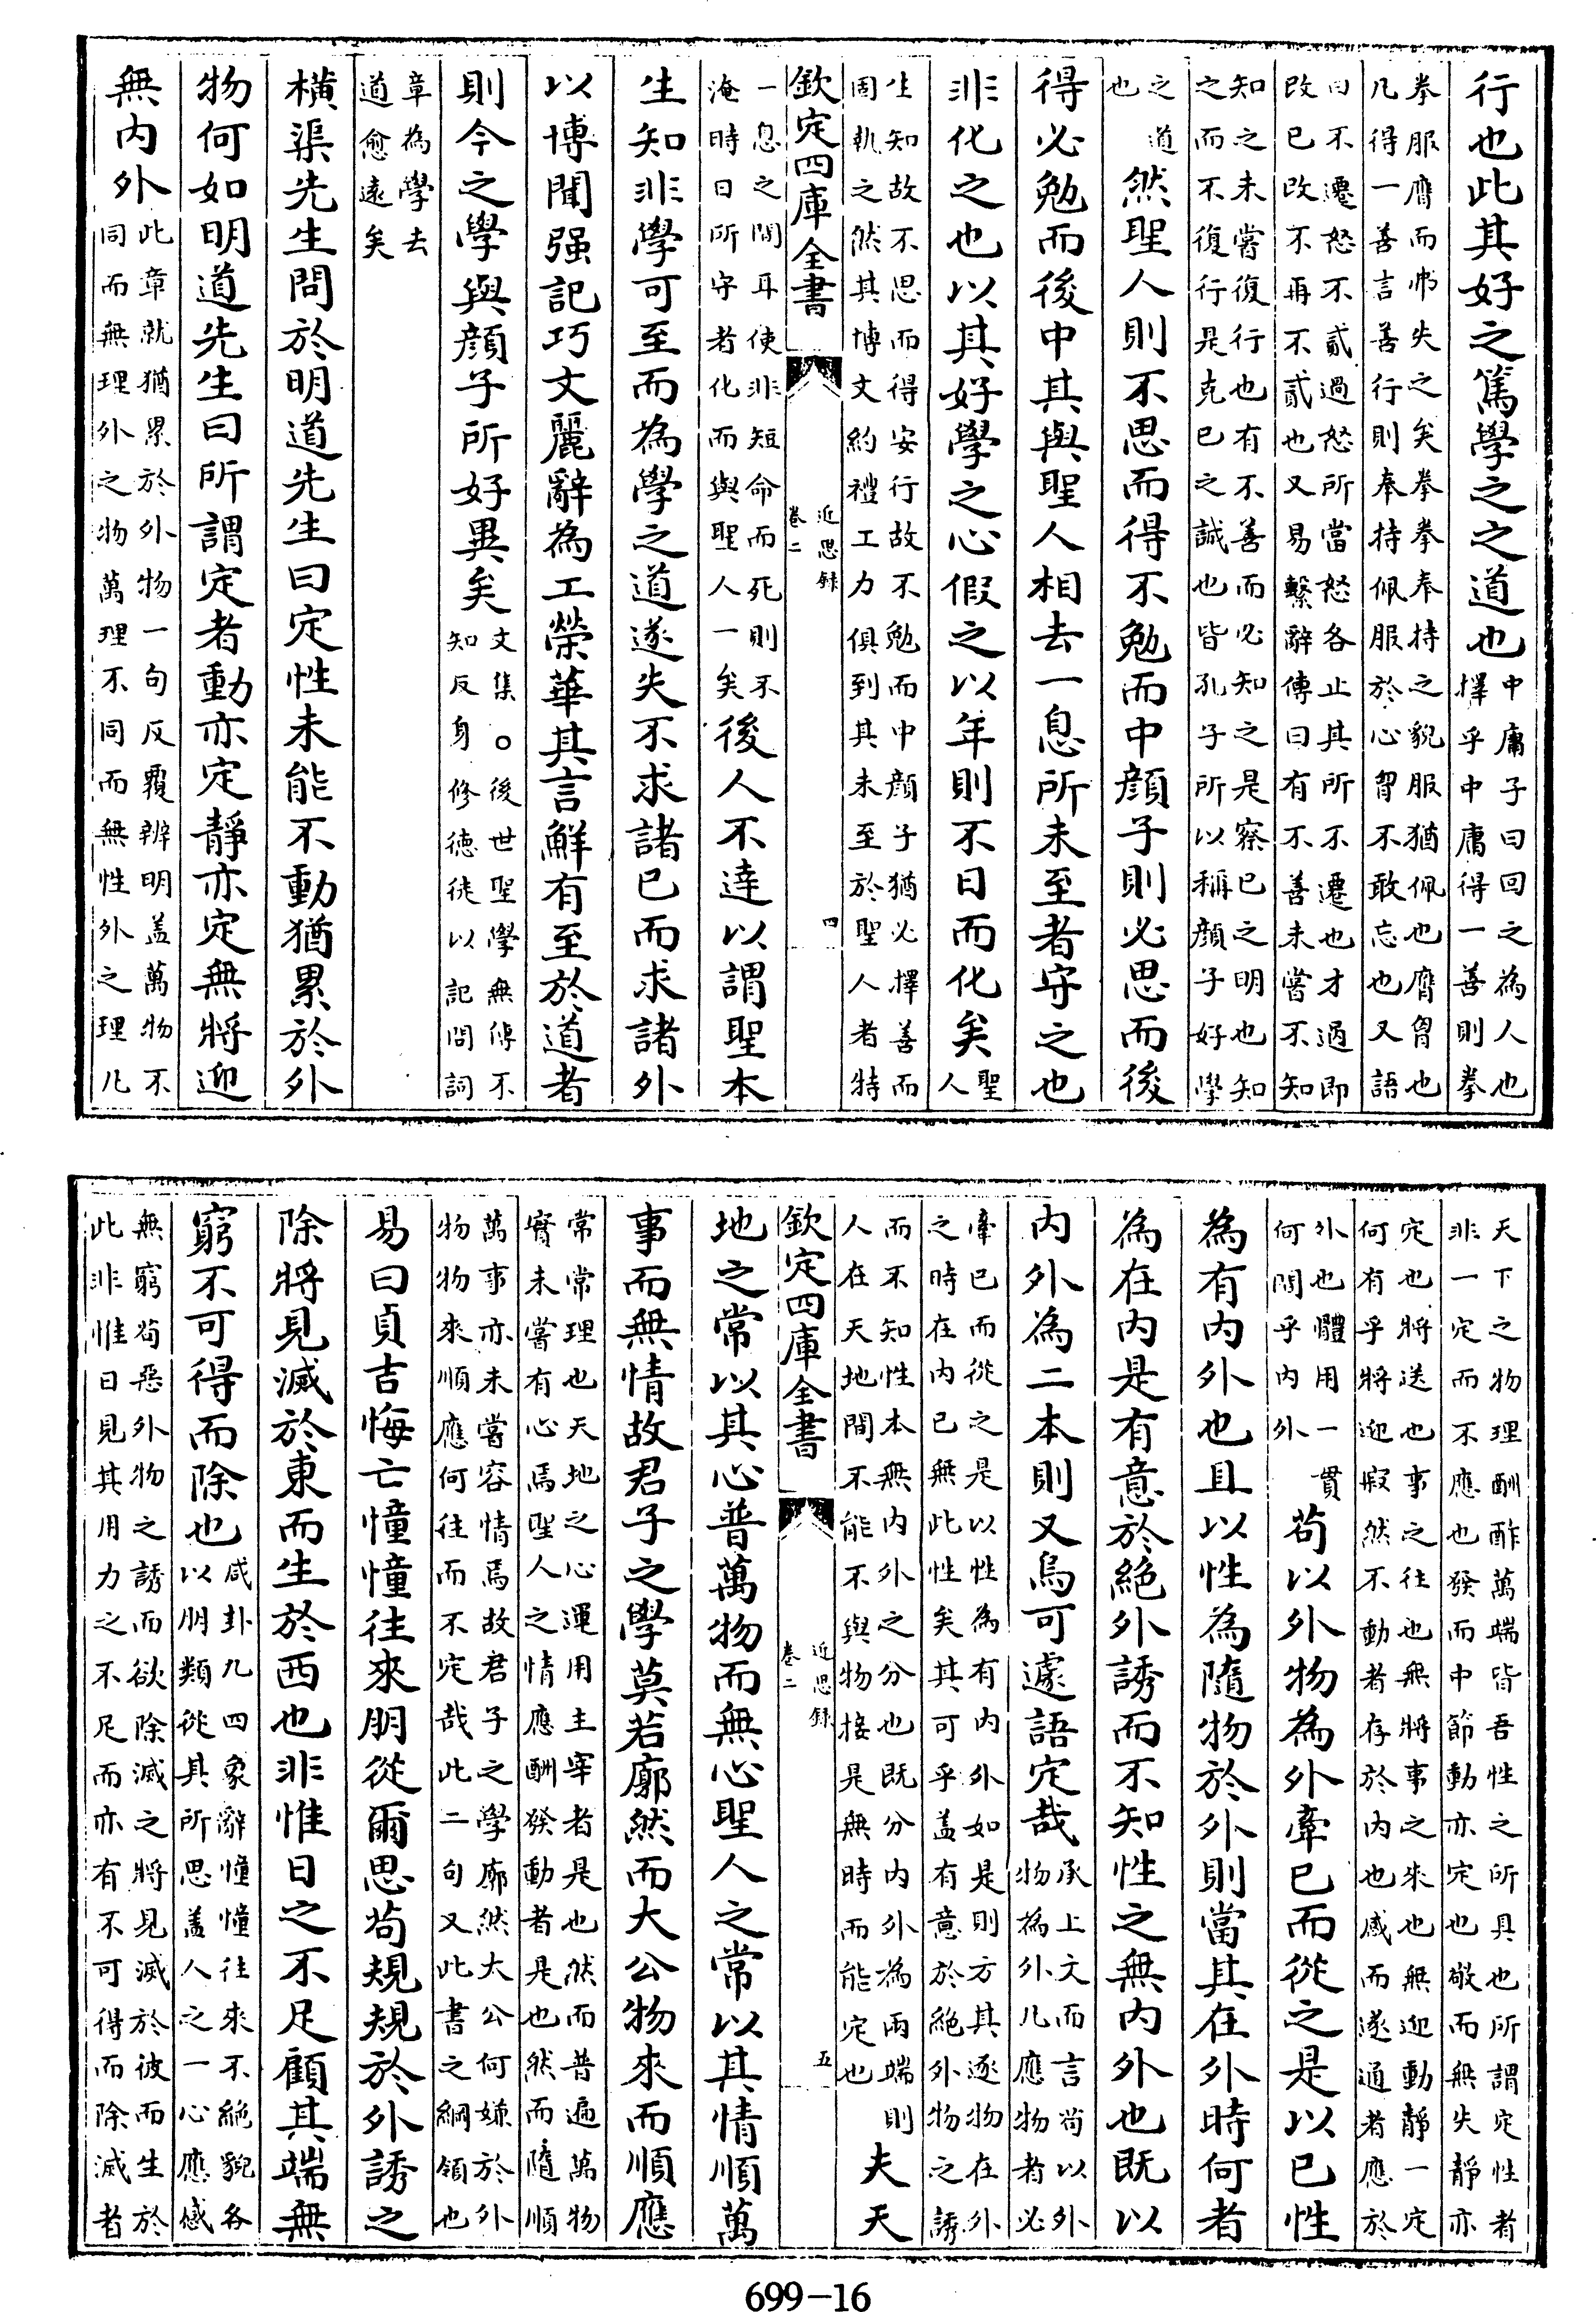 行也此其好之篤學之之道也中庸子曰回之為人也擇乎中庸得一善則拳
拳服膺而弗失之矣拳拳奉持之貌服猶佩也膺胷也凡得一善言善行則奉持佩服於心胷不敢忘也又語
曰不遷怒不貳過怒所當怒各止其所不遷也才過即改已改不再不貳也又易繫辭傳曰有不善未嘗不知
知之未嘗復行也有不善而必知之是察已之明也知之而不復行是克已之誠也皆孔子所以稱顔子好學
之道也然聖人則不思而得不勉而中顔子則必思而後
得必勉而後中其與聖人相去一息所未至者守之也
非化之也以其好學之心假之以年則不日而化矣聖人
生知故不思而得安行故不勉而中顔子猶必擇善而固執之然其博文約禮工力俱到其未至於聖人者特
欽定四庫全書 近思錄 卷二 四
一息之間耳使非短命而死則不淹時日所守者化而與聖人一矣後人不達以謂聖本
生知非學可至而為學之道遂失不求諸已而求諸外
以博聞强記巧文麗辭為工榮華其言鮮有至於道者
則今之學與顔子所好異矣文集○後世聖學無傳不知反身修德徒以記問詞
章為學去道愈遠矣
橫渠先生問於明道先生曰定性未能不動猶累於外
物何如明道先生曰所謂定者動亦定靜亦定無將迎
無内外此章就猶累於外物一句反覆辨明盖萬物不同而無理外之物萬理不同而無性外之理凡
天下之物理酬酢萬端皆吾性之所具也所謂定性者非一定而不應也發而中節動亦定也敬而無失靜亦
定也將送也事之往也無將事之來也無迎動靜一定何有乎將迎寂然不動者存於内也感而遂通者應於
外也體用一貫何間乎内外苟以外物為外牽已而從之是以已性
為有内外也且以性為隨物於外則當其在外時何者
為在内是有意於絶外誘而不知性之無内外也既以
内外為二本則又烏可遽語定哉承上文而言苟以外物為外凡應物者必
牽已而從之是以性為有内外如是則方其逐物在外之時在内已無此性矣其可乎盖有意於絶外物之誘
而不知性本無内外之分也既分内外為兩端則人在天地間不能不與物接是無時而能定也夫天
欽定四庫全書 近思錄 卷二 五
地之常以其心普萬物而無心聖人之常以其情順萬
事而無情故君子之學莫若廓然而大公物來而順應
常常理也天地之心運用主宰者是也然而普遍萬物實未嘗有心焉聖人之情應酬發動者是也然而隨順
萬事亦未嘗容情焉故君子之學廓然大公何嫌於外物物來順應何往而不定哉此二句又此書之綱領也
易曰貞吉悔亡憧憧往來朋從爾思苟規規於外誘之
除將見滅於東而生於西也非惟日之不足顧其端無
窮不可得而除也咸卦九四象辭憧憧往來不絶貌各以朋類從其所思盖人之一心應感
無窮苟惡外物之誘而欲除滅之將見滅於彼而生於此非惟日見其用力之不足而亦有不可得而除滅者
699-16